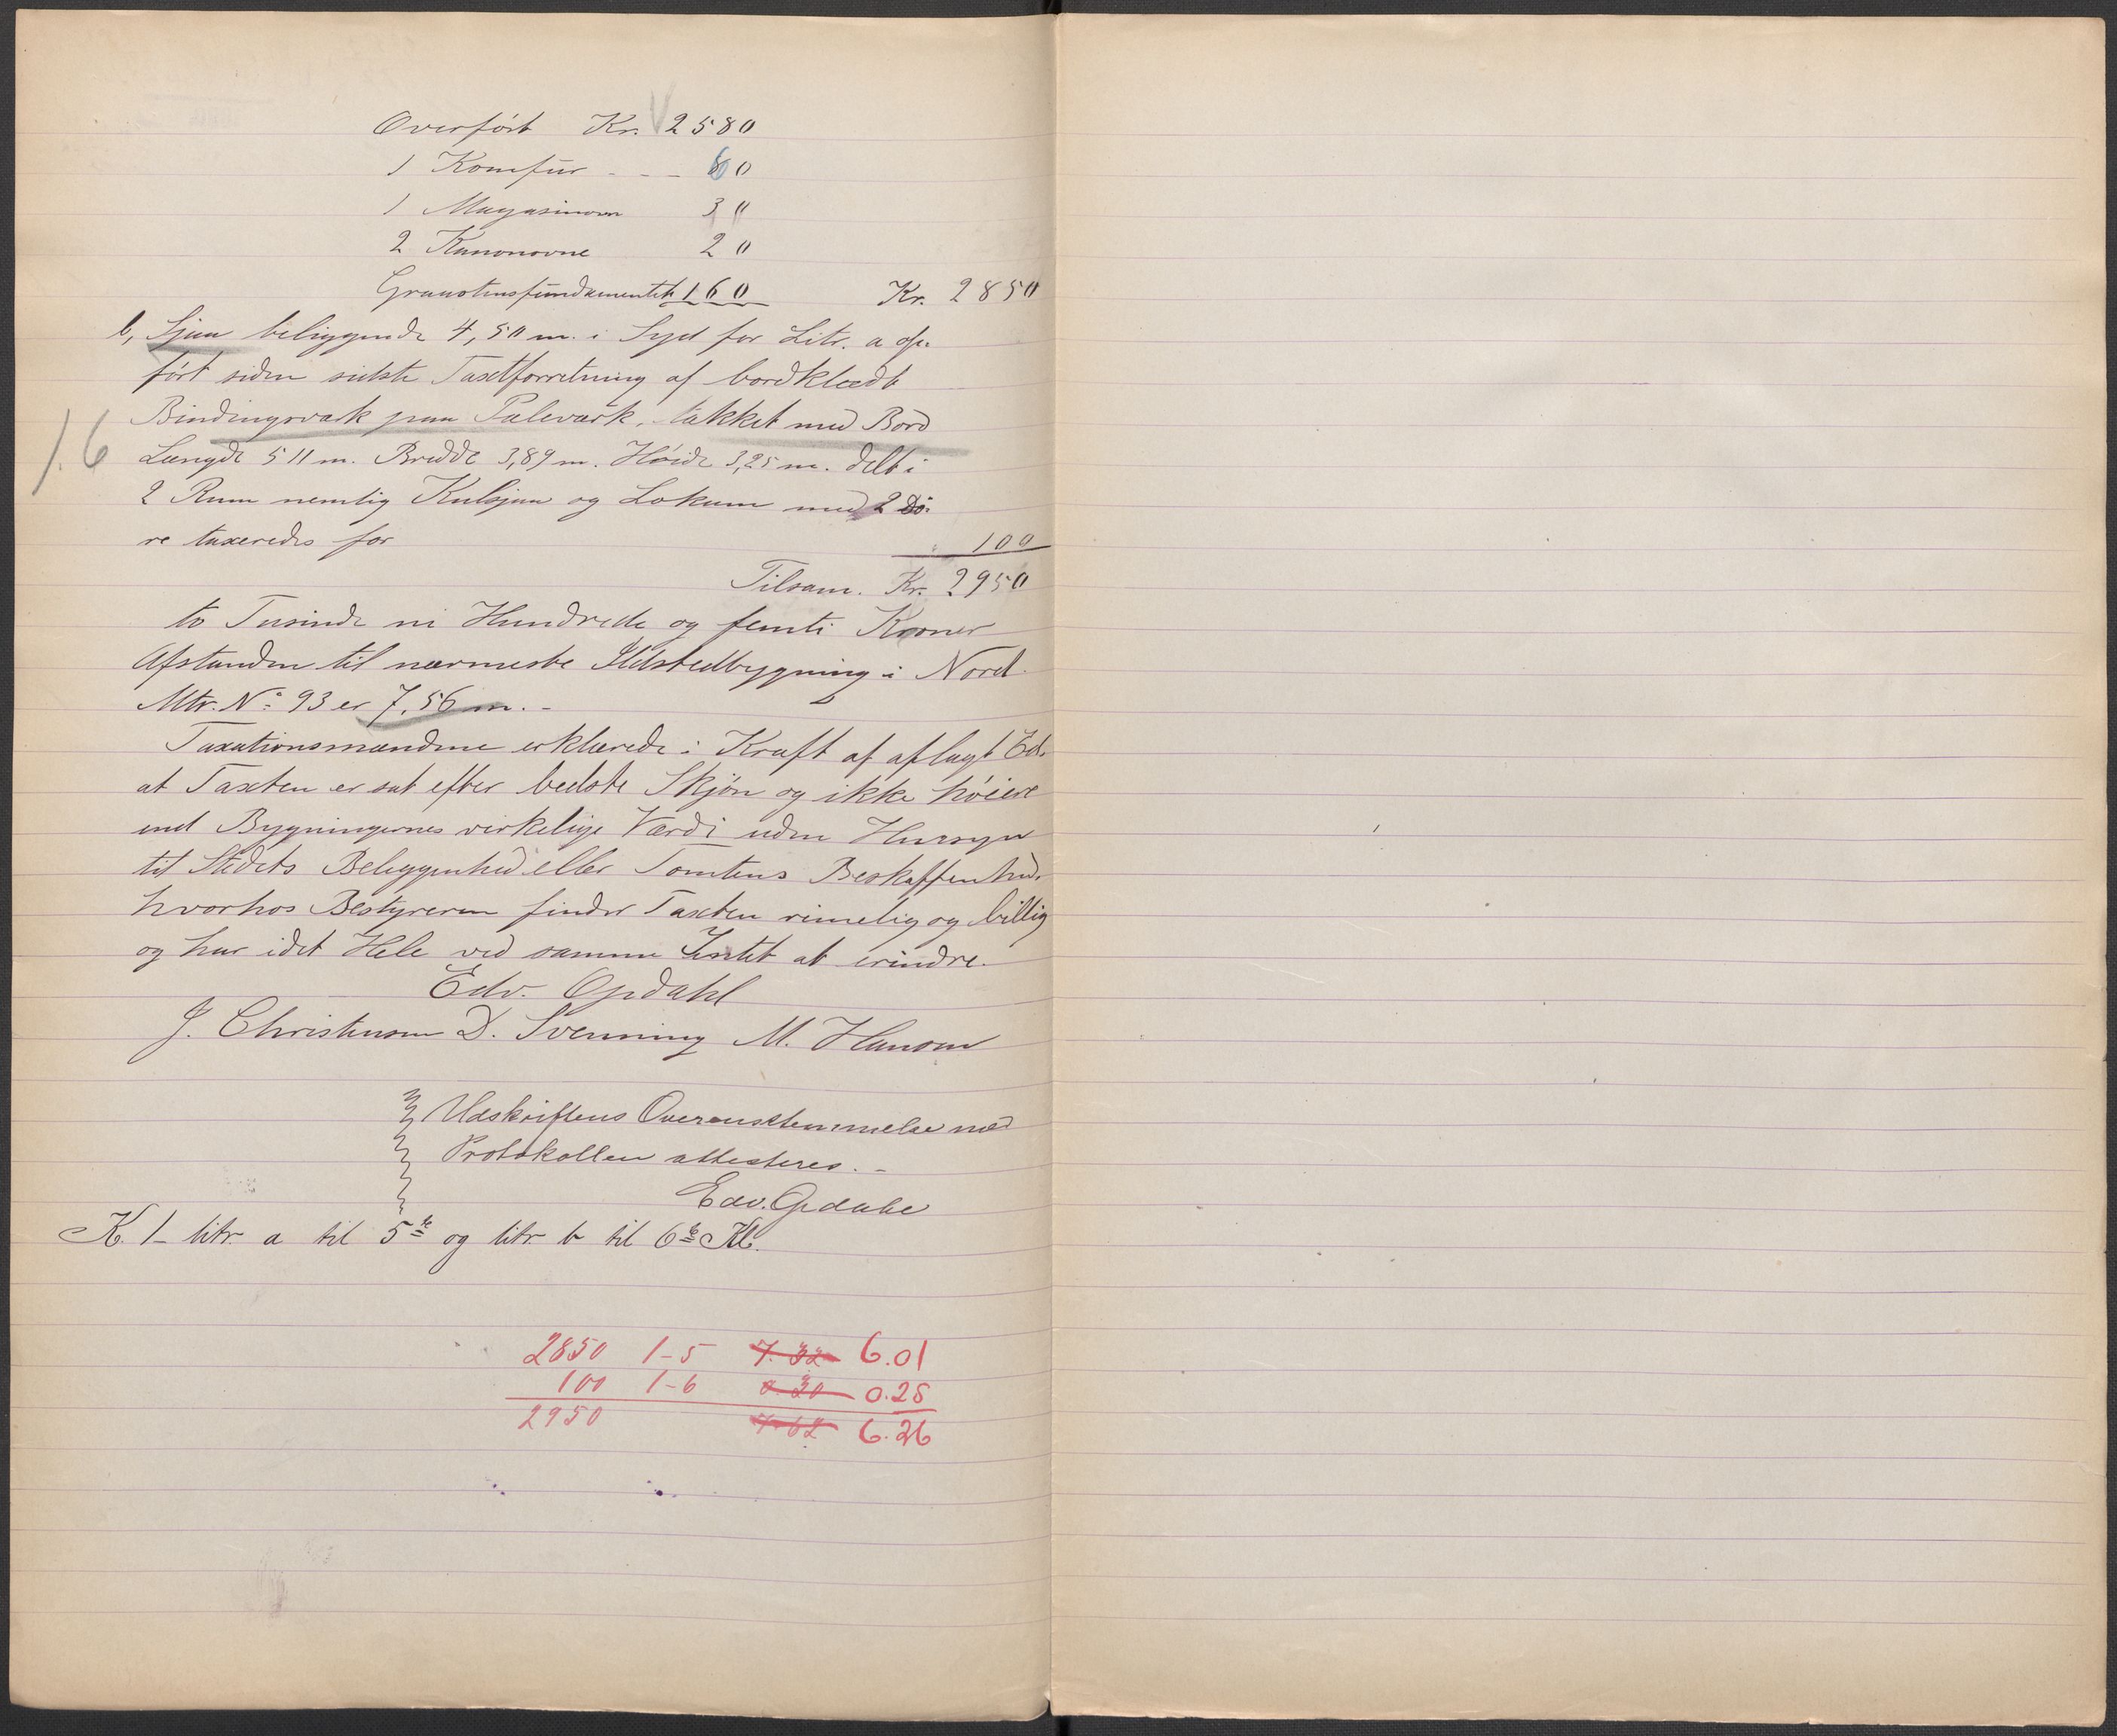 Overført Kr. 2580
1 Komfur - - - 60
1 Magasinovn 30
2 Kanonovne 20
Graastensfundamentet 160 Kr. 2850
b, Sjaa beliggende 4,50 m. i Syd for Litr. a op-
ført siden sidste Taxtforretning af bordklædt
Bindingsværk paa Pæleværk, tækket med Bord
1.6
Længde 511 m. Bredde 3,89 m. Høide 3,25 m. delt i
2 Rum nemlig Kulsjaa og Lokum med 2 Dø-
re taxeredes for 100
Tilsam. Kr. 2950
to Tusinde ni Hundrede og femti Kroner
Afstanden til nærmeste Ildstedbygning i Nord
Mtr. No 93 er 7,56 m. -
Taxationsmændene erklærede i Kraft af aflagt Ed.
at Taxten er sat efter bedste Skjøn og ikke høiere
end Bygningernes virkelige Værdi uden Hensyn
til Stedets Beliggenhed eller Tomtens Beskaffenhed.
hvorhos Bestyreren finder Taxten rimelig og billig
og har idet Hele ved samme Intet at erindre.
Edv. Opdahl
J. Christensen D. Svenning M. Hanson
Udskriftens Overensstemmelse med
Protokollen attesteres. -
Edv. Opdahl
K. 1 - litr. a til 5te og litr. b til 6te Kl.
2850 1-5 7.32 6.01
100 1-6 0.30 0.25
2950 7.62 6.26